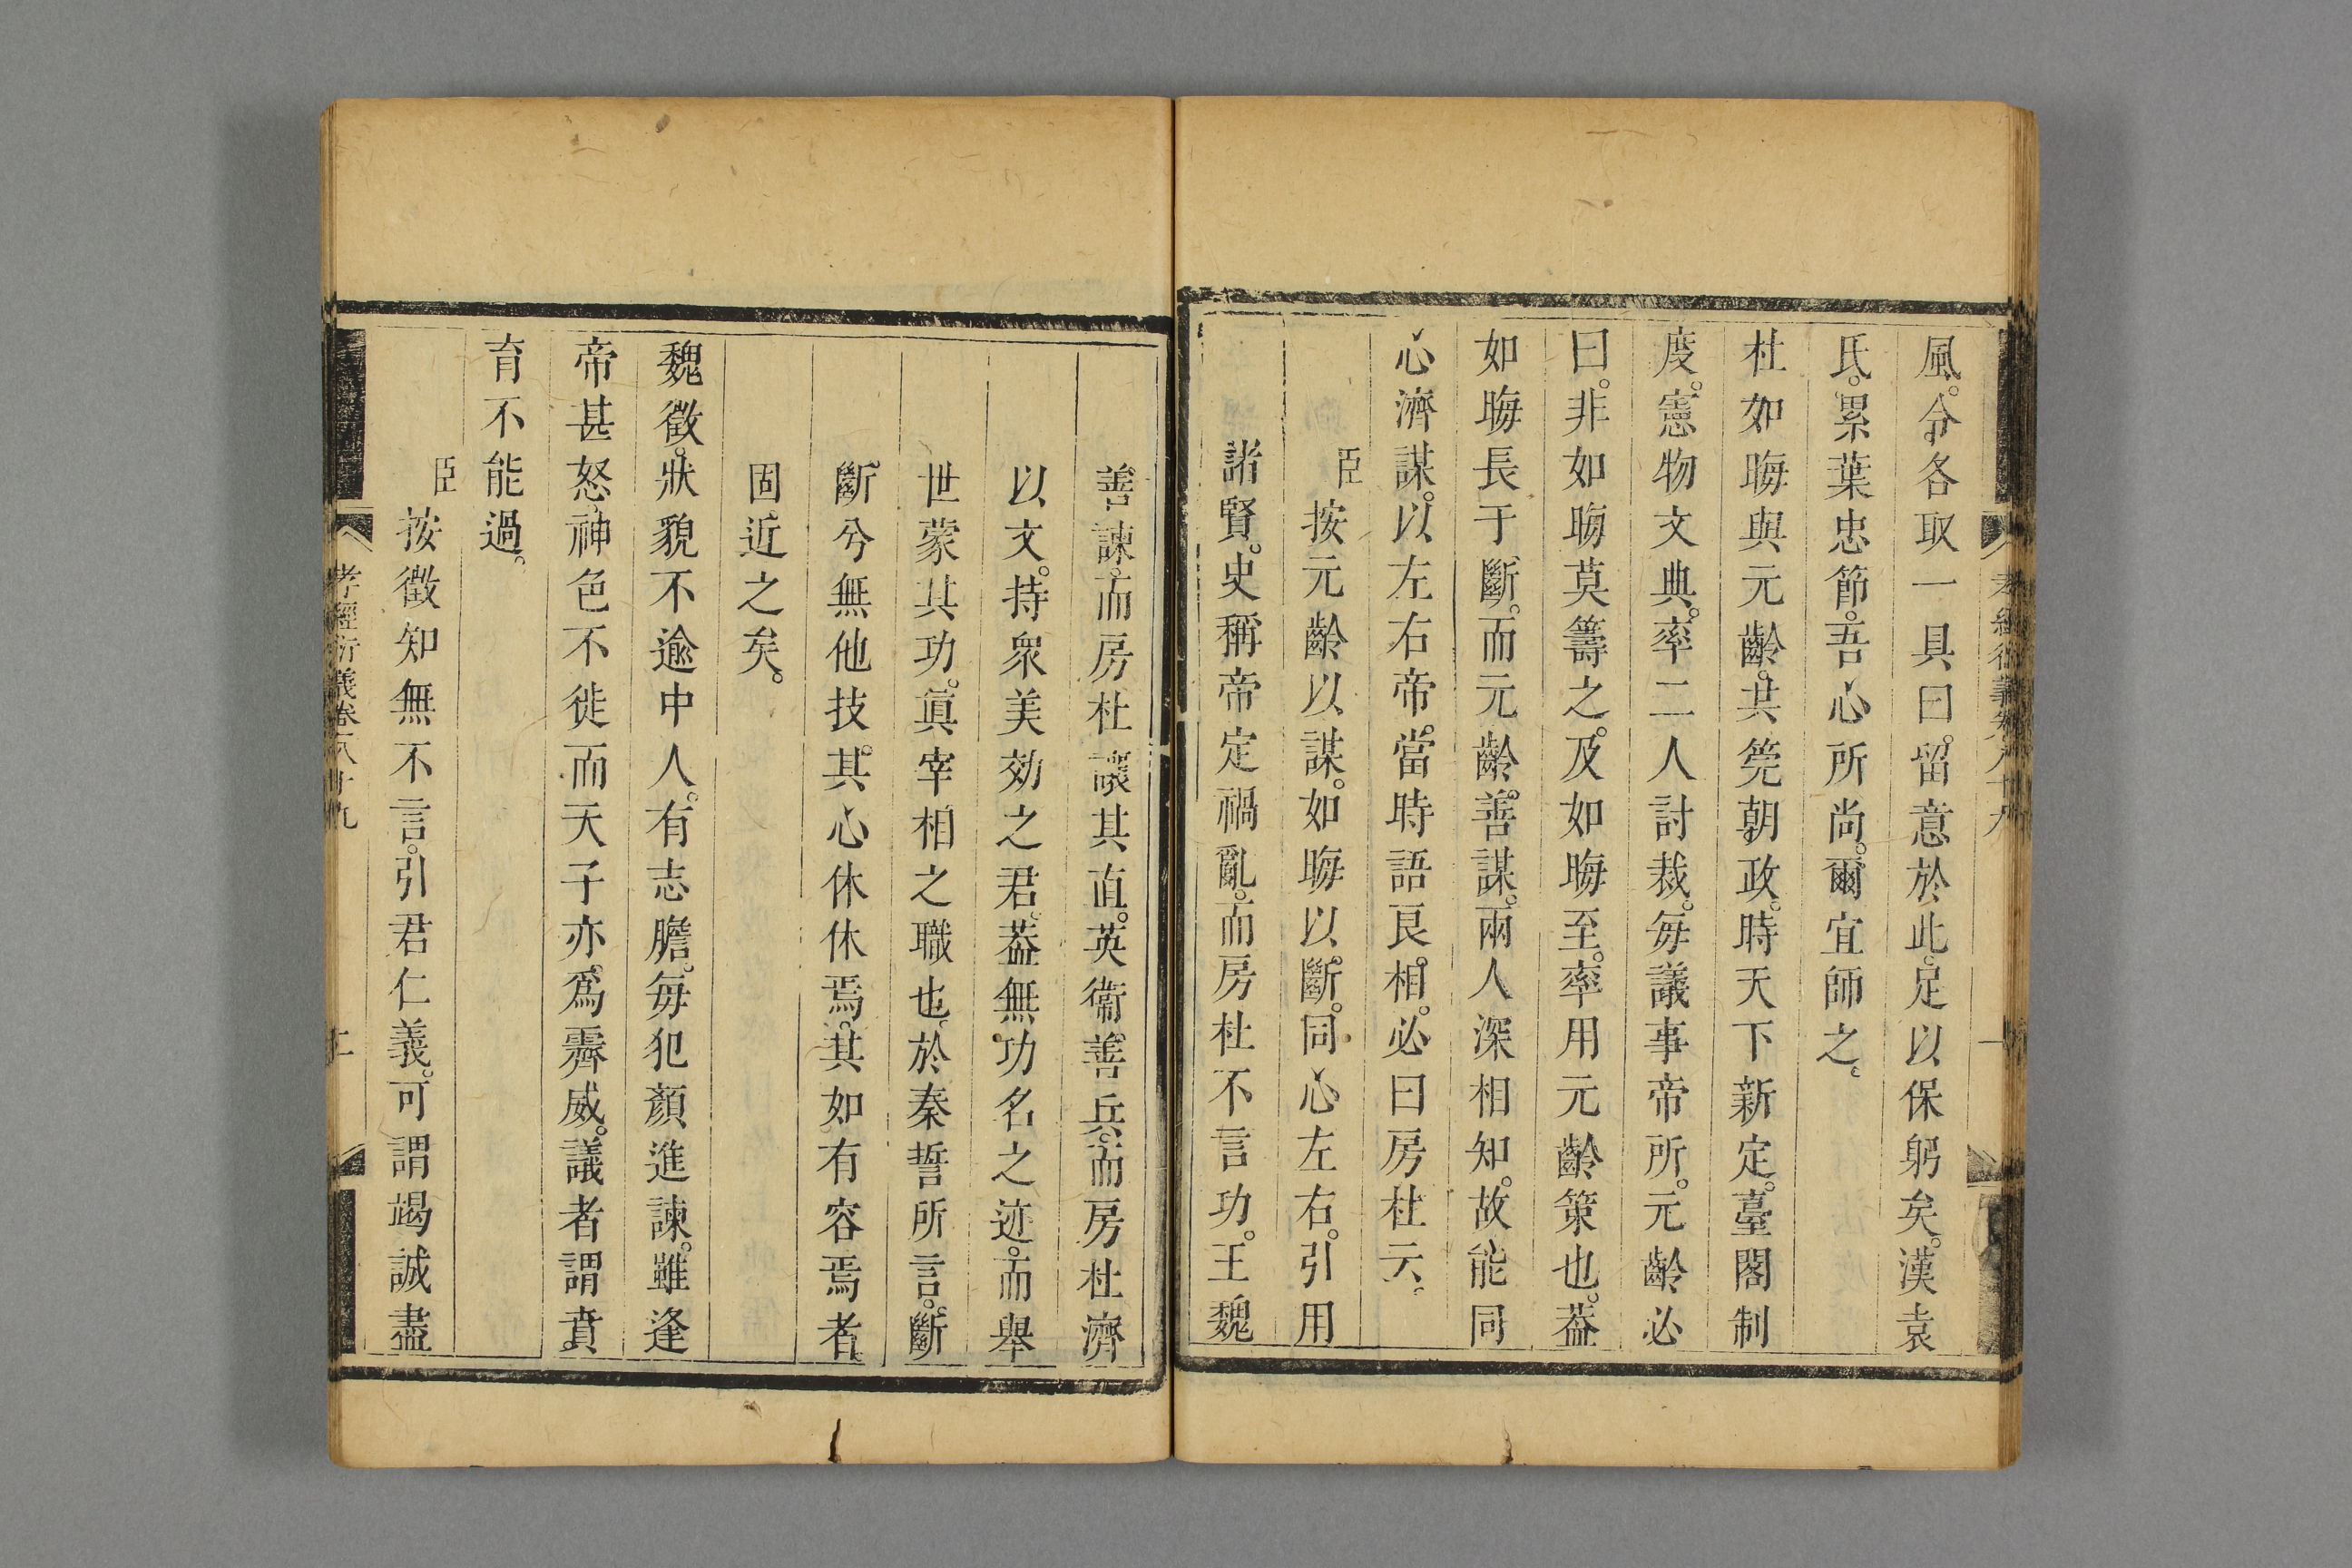 風。令各取一具曰。留意於此。足以保躬矣。漢袁
氏。累葉忠節。吾心所尚。爾宜師之。
杜如晦與元齡。共筦朝政。時天下新定。臺閣制
度。憲物文典。率二人討裁。每議事帝所。元齡必
曰。非如晦莫籌之。及如晦至。率用元齡策也。葢
如晦長于斷。而元齡。善謀。兩人深相知。故能同
心濟謀。以左右帝。當時語良。相。必曰房杜云。
臣按元齡以謀。如晦以。斷。同心左右。引用
諸賢。史稱帝定禍亂。而房杜不言功。王魏
善諫。而房杜讓其直。英衞善兵。而房杜濟
以文。持衆美効之君。葢無功名之迹。而舉
世蒙其功。眞宰相之職也。於秦誓所言。斷
斷兮無他技。其心休休焉。其如有容焉者。
固近之矣。
魏徵。狀貌不逾中人。有志膽。每犯顏進諫。雖逢
帝甚怒。神色不徙。而天子亦。爲霽威。議者謂賁
育不能過。
臣按徵知無不言。引君仁義。可謂竭誠盡
孝經衍義卷八十九